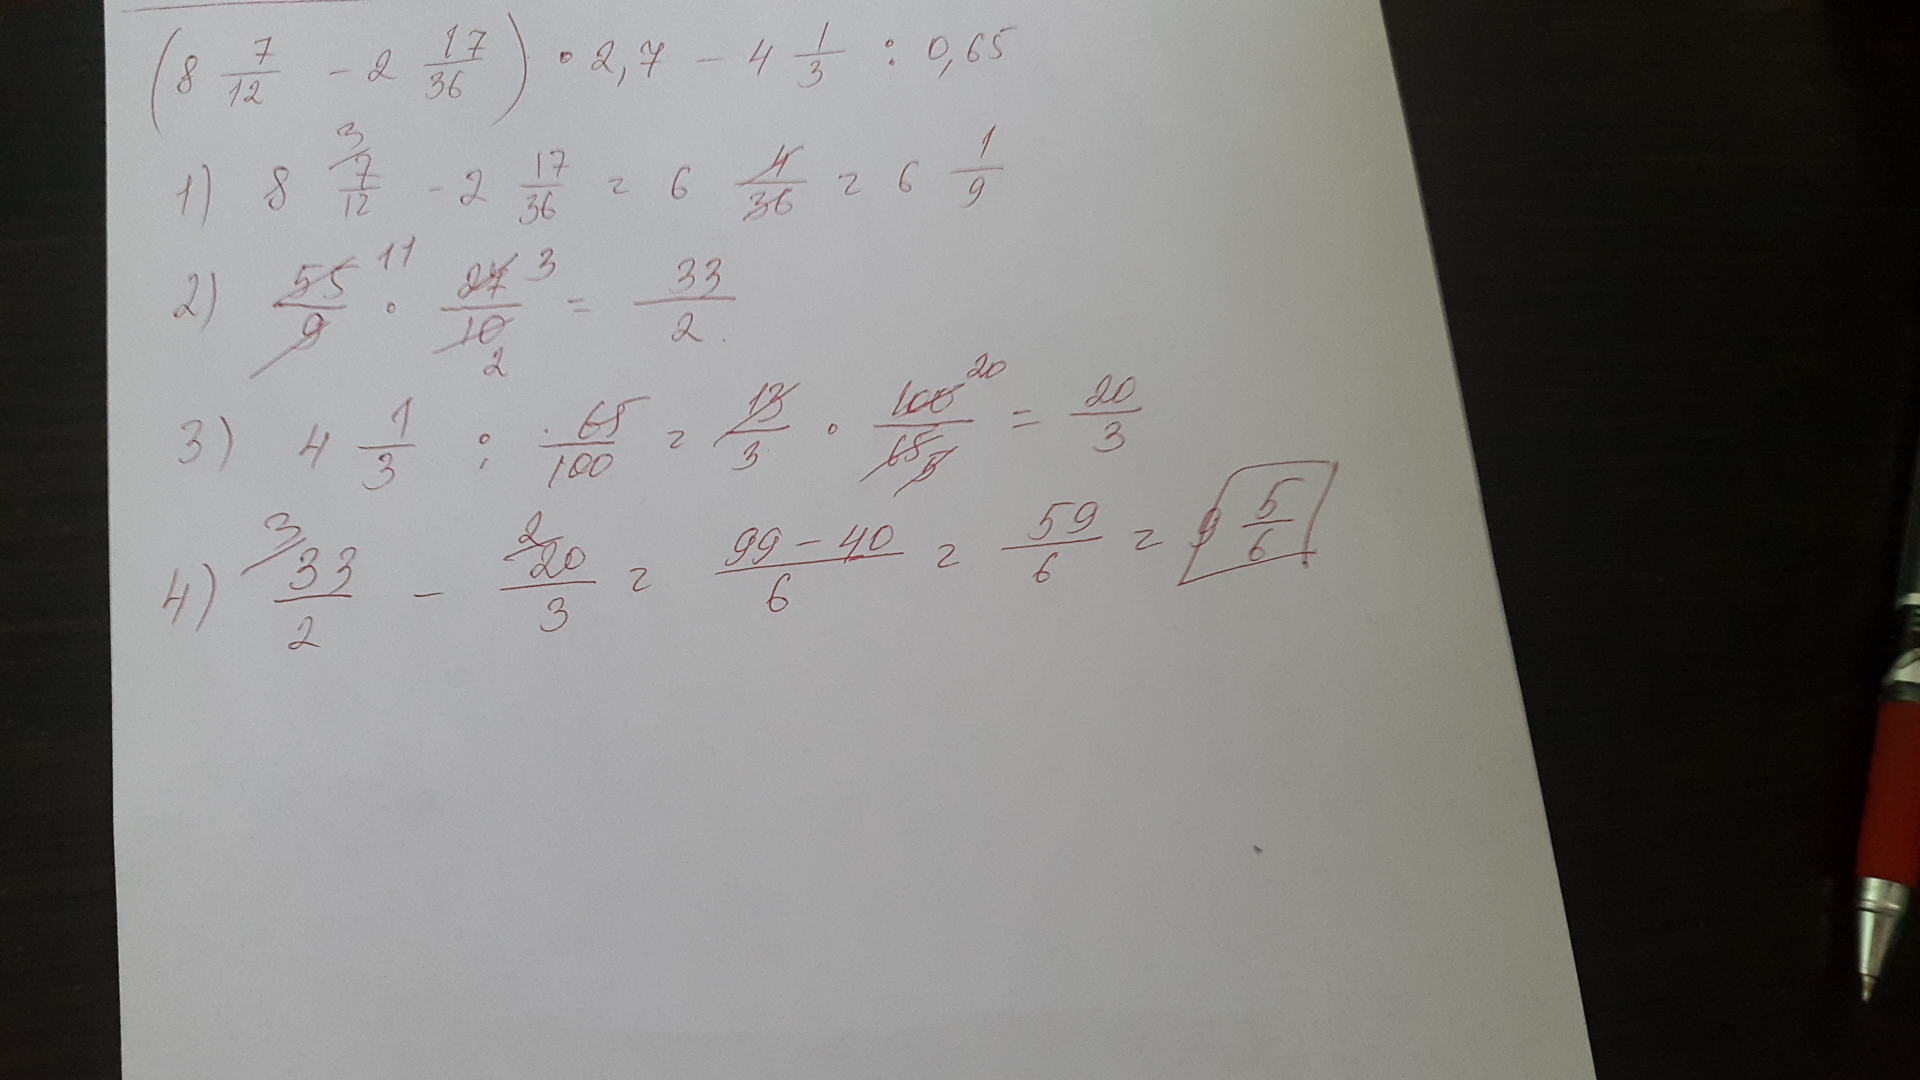 (8 7/12 - 2 17/36) · 2,7 - 4 1/3 : 0,65
1) 8 7/12 ³ - 2 17/36 = 6 4/36 = 6 1/9
2) 55/9 11 · 27/10 3 2 = 33/2.
3) 4 1/3 : 65/100 = 13/3 · 100/65 20 5 = 20/3
4) 3 33/2 - 2 20/3 = 99-40/6 = 59/6 = 9 5/6